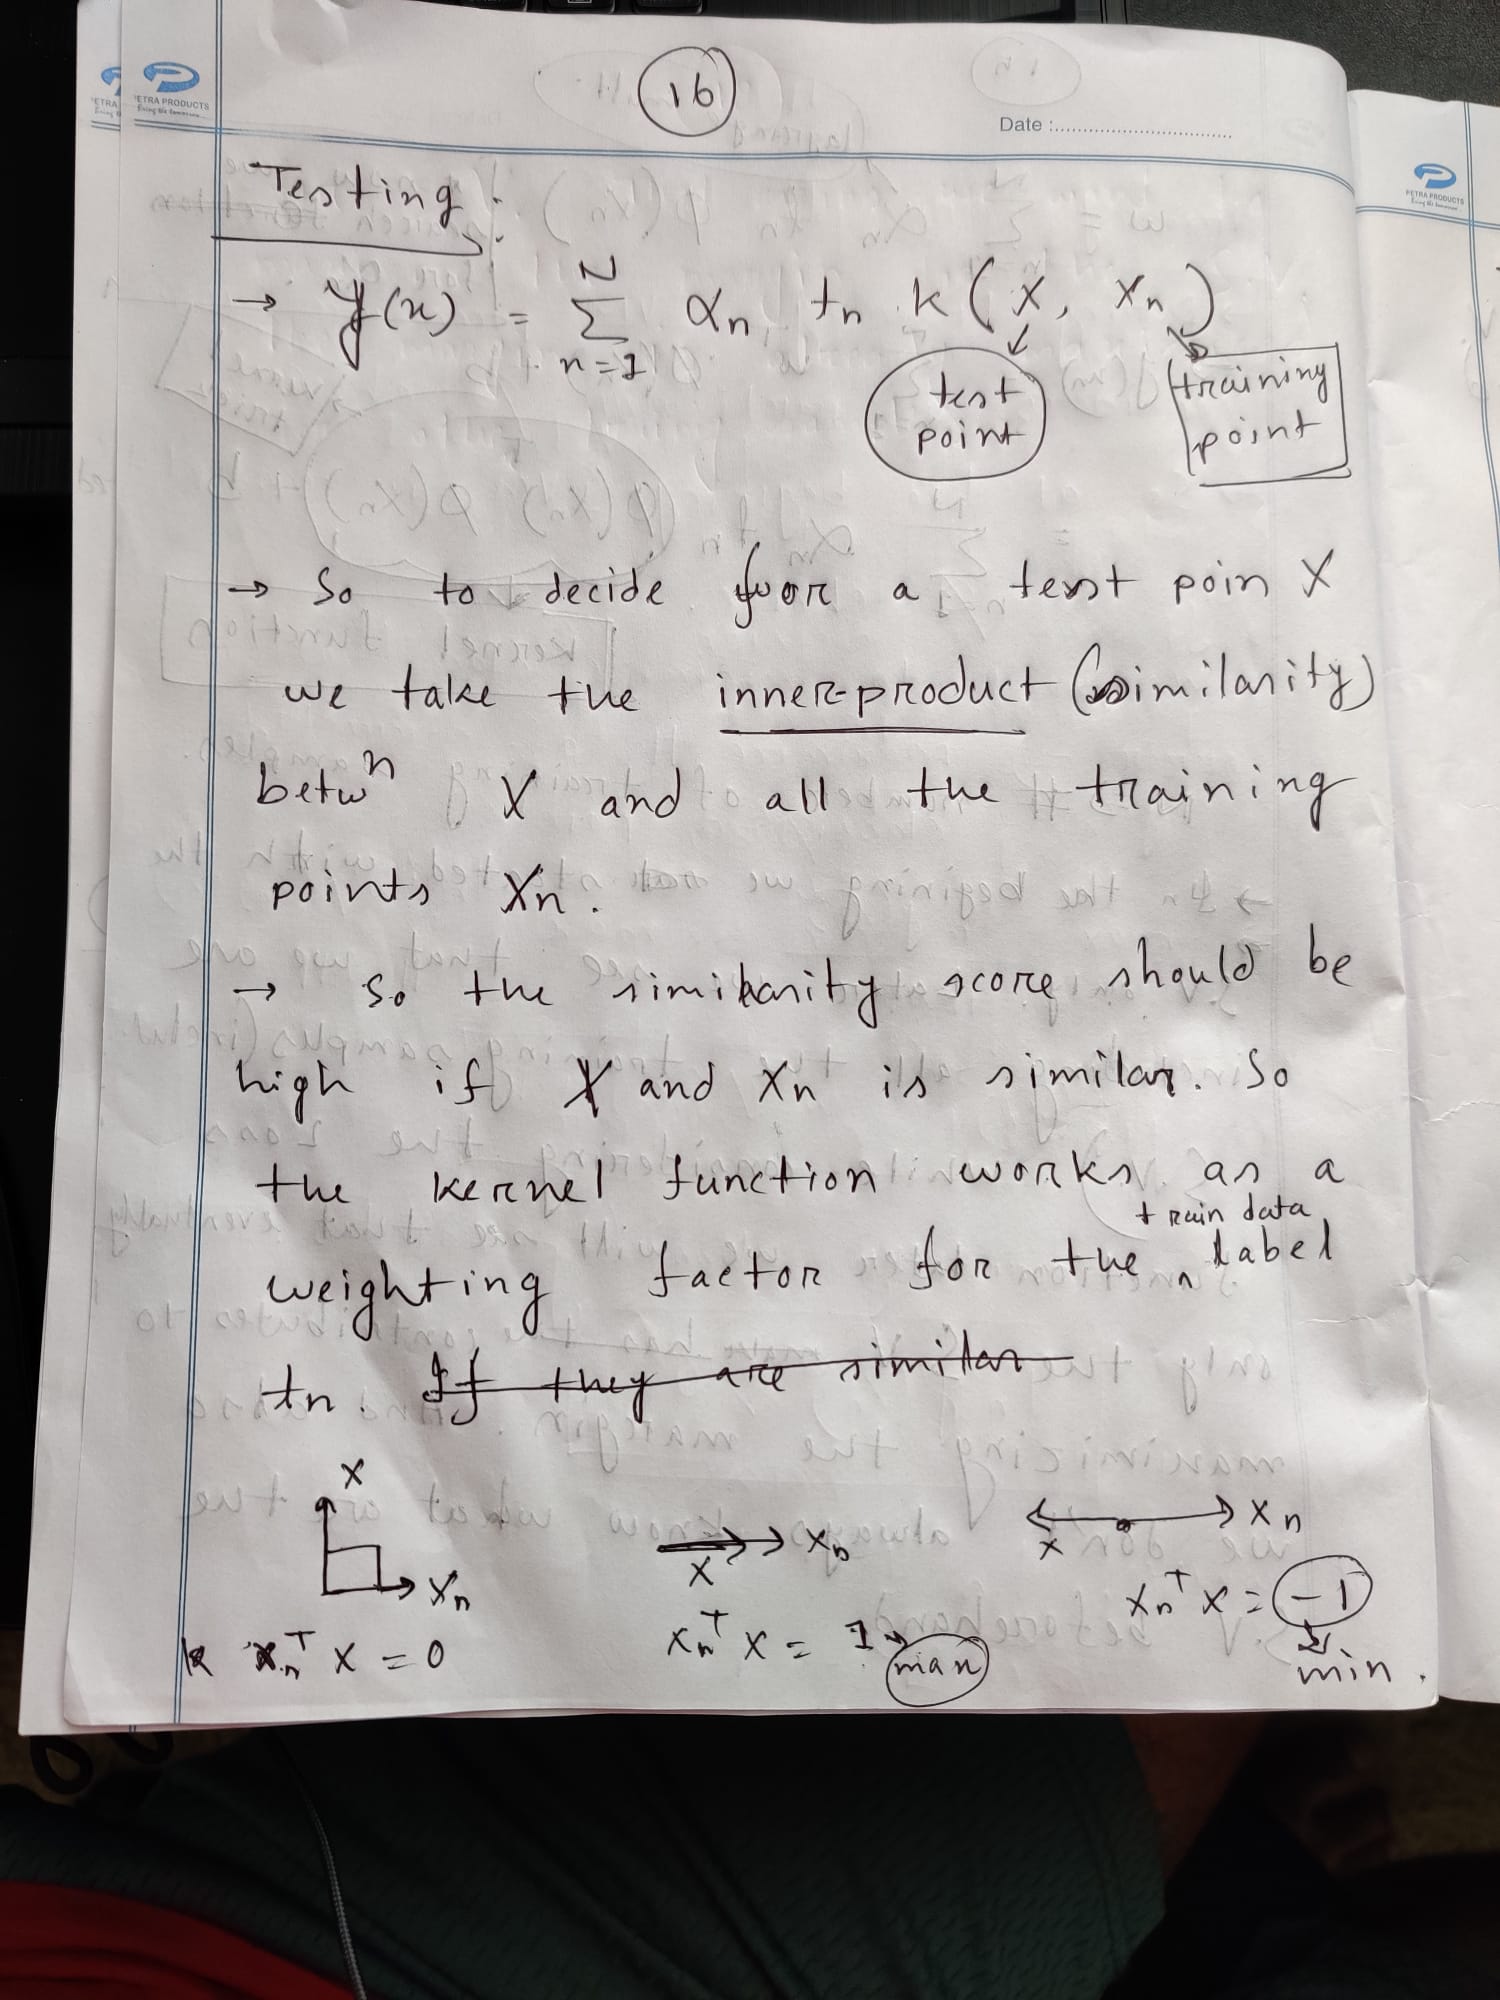 16
PETRA PRODUCTS
Date :
Testing :
→ y(x) = N Σ n=1 αn tn k (X, Xn)
test point
training point
→ So to decide for a test poin X
we take the inner-product (similarity)
betwⁿ X and all the training
points Xn.
→ So the similarity score should be
high if X and Xn is similar. So
the kernel function works as a
train data
weighting factor for the ^ label
tn. If they are similar
X
Xn
Xn^T X = 0
X
Xn
Xn^T X = 1 → max
X
Xn
Xn^T X = -1
min.
PETRA PRODUCTS